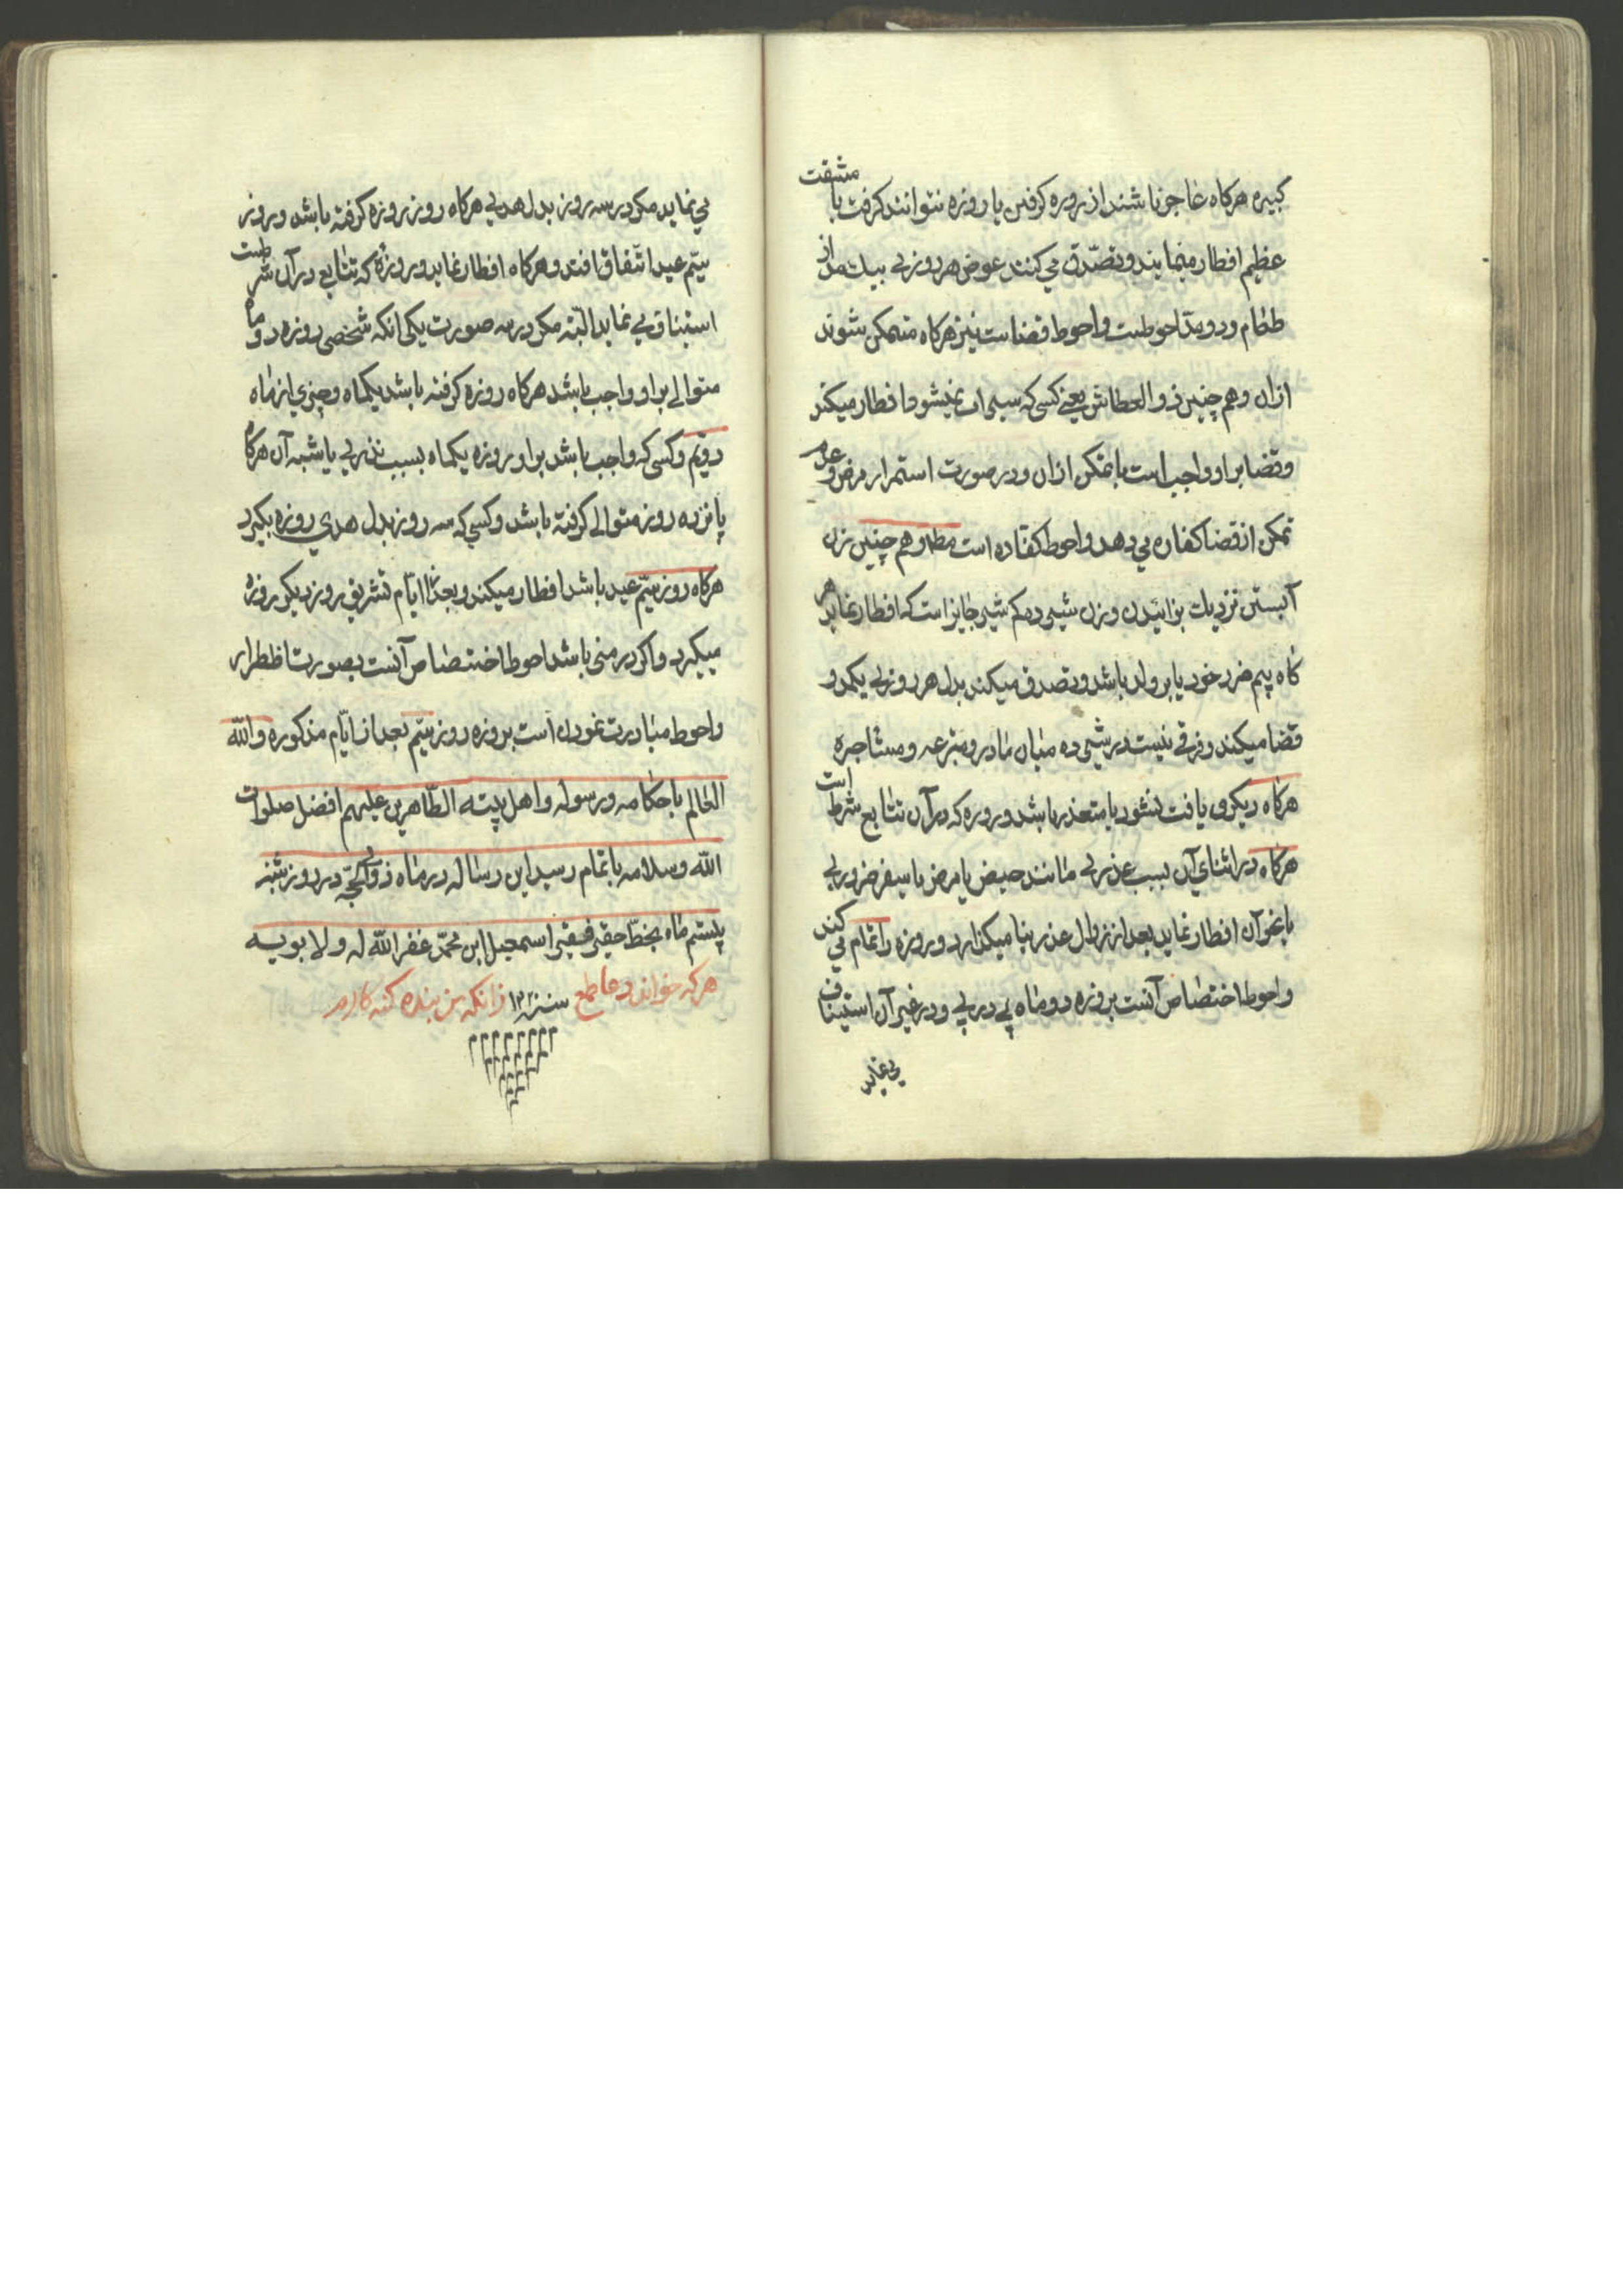 کبیره هرکاه عاجز باشند از روزه کرفتن یا روزه نتوانند کرفت با مشقت
عظیم افطار مینمایند و تصدّق می کنند عوض هر روزی بیک مد از
طعام و دو مدّ احوطست و احوط قضاست نیز هرکاه متمکن شوند
ازان وهم چنین ذو العطاش یعنی کسی که سیراب نمیشود افطار میکند
وقضا براو واجب است با تمکن ازان ودر صورت استمرار مرض و عدم
تمکن از قضا کفاره می دهد و احوط کفاره است مطلقا وهم چنین زن
آبستن نزدیک بزائیدن وزن شیر ده کم شیر جایز است که افطار نماید هر
کاه بیم ضرر خود یا بر ولد باشد وتصدق میکند بدل هر روزی یکمد و
قضا میکند وفرقی نیست در شیر ده میان مادر و متبرعه و مستاجره
هرکاه دیکری یافت نشود یا متعذر باشد وروزه که درآن تتابع شرط است
هرکاه در اثنای آن بسبب عذری مانند حیض یا مرض یا سفر ضروری
یا نحو آن افطار نماید بعد از زوال عذر بنا میکذارد وروزه را تمام می کند
واحوط اختصاص آنست بروزه دو ماه پی در پی ودر غیر آن استیناف
می نماید
می نماید مکر در سه روز بدل هدی هرکاه دو روز روزه کرفته باشد و روز
سیّم عید اتّفاق افتد و هرکاه افطار نماید در روزهٔ که تتابع درآن شرطست
استیناف می نماید البتّه مکر در سه صورت یکی انکه شخصی روزه دو ماه
متوالی براو واجب باشد هرکاه روزه کرفته باشد یکماه و چیزی از ماه
دویّم وکسی که واجب باشد براو روزه یکماه بسبب نذری یا شبه آن هرکاه
پانزده روز متوالی کرفته باشد وکسی که سه روز بدل هدی روزه بکیرد
هرکاه روز سیّم عید باشد افطار میکند و بعد از ایّام تشریق روز دیکر روزه
میکیرد و اکر در منی باشد احوط اختصاص آنست بصورت اظطرار
واحوط مبادرت نمودن است بروزه روز سیّم بعد از ایّام مذکوره والله
العالم باحکامه ورسوله واهل بیته الطّاهرین علیهم افضل صلوات
الله وسلامه باتمام رسید این رساله در ماه ذی الحجّه در روز شنبه
بیستم ماه بخطّ حقیر فقیر اسمعیل ابن محمّد غفر الله له ولابویه
هرکه خواند دعا طمع دارم سنه زانکه من بنده کنه کارم